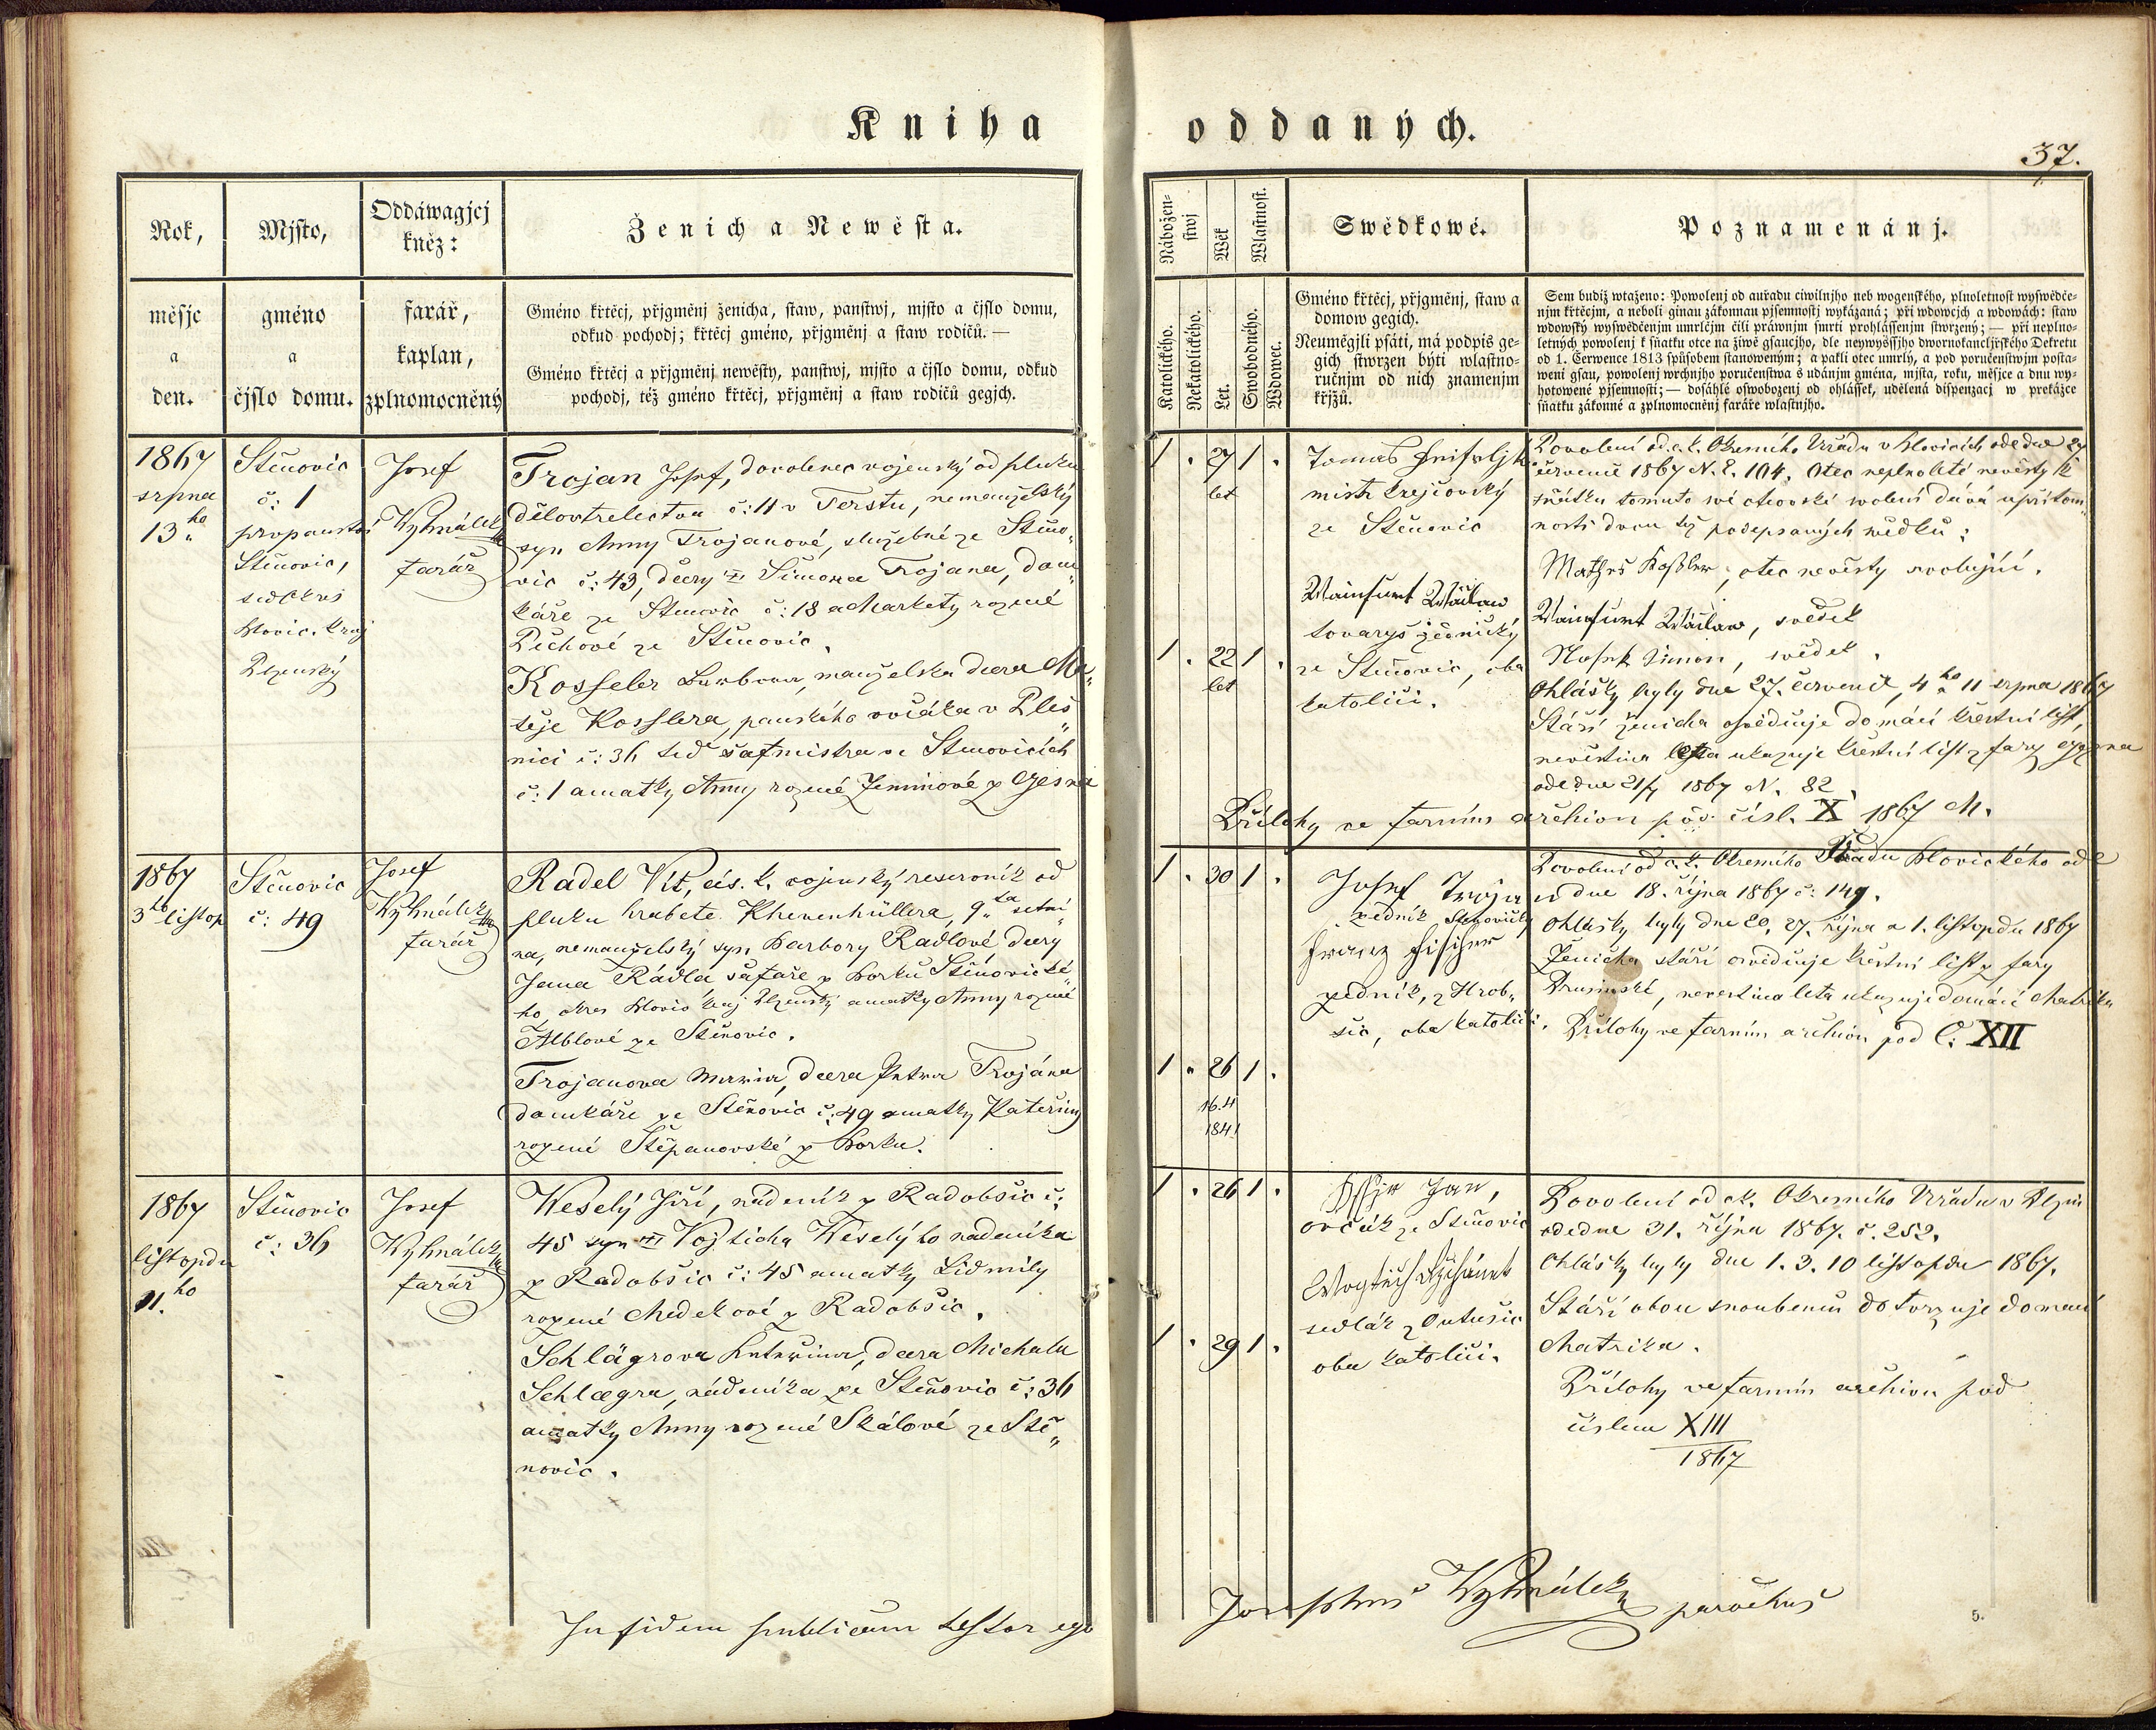 Kniha oddaných.
37.
Rok,
měsjc
a
den.
Mjsto,
gméno
a
čjslo domu.
Oddáwagjcj
kněz:
farář,
kaplan,
zplnomocněný
Ženich a Newěsta.
Gméno křtěcj, přjgměnj ženicha, staw, panstwj, mjsto a čjslo domu,
odkud pochodj; křtěcj gméno, přjgměnj a staw rodičů. —
Gméno křtěcj a přjgměnj newěsty, panstwj, mjsto a čjslo domu, odkud
pochodj, též gméno křtěcj, přjgměnj a staw rodičů gegjch.
Nábožen-
stwj
Wěk
Wlastnost.
Katolického.
Nekatolického.
Let.
Swobodného.
Wdowec.
Swědkowé.
Gméno křtěcj, přjgměnj, staw a
domow gegich.
Neumějgjli psáti, má podpis ge-
gich stwrzen býti wlastno-
ručnjm od nich znamenjm
křjžů.
Poznamenánj.
Sem budiž wtaženo: Powolenj od auřadu ciwilnjho neb wogenského, plnoletnost wyswědče-
njm křtěcjm, a neboli ginau zákonnau pjsemnostj wykázaná; při wdowcjch a wdowách: staw
wdowský wyswědčenjm umrlčjm čili práwnjm smrti prohlássenjm stwrzený; — při neplno-
letných powolenj k sňatku otce na žiwě gsaucjho, dle neywyšssjho dwornokancljřského Dekretu
od 1. Čerwence 1813 spůsobem stanoweným; a pakli otec umrlý, a pod poručenstwjm posta-
weni gsau, powolenj wrchnjho poručenstwa s udánjm gména, mjsta, roku, měsjce a dnu wy-
hotowené pjsemnosti; — dosáhlé oswobozenj od ohlássek, udělená dispenzacj w překážce
sňatku zákonné a zplnomocněnj faráře wlastnjho.
1867
srpna
13ho
Stěnovic
č: 1
Stěnovic,
Plzenský
Josef
Vyhnálek
farář
Trojan Josef, dovolenec vojenský od pluku
dělostrelectva č: 11 v Terstu, nemanželský
syn Anny Trojanové, služebné ze Stěno„
vic č: 43, dcery Šimona Trojana, dom„
káře ze Stěnovic č: 18 a Markety rozené
ze Stěnovic.
Kossler Barbora, manželska dcera Ma„
těje Kosslera, panského ovčáka v Ples„
nici č: 36 teď šafmistra ve Stěnovicích
č: 1 a matky Anny rozené
1 . 27 1 .
let
Tomas
mistr krejčovský
ze Stěnovic
Wainfurt Wáclaw
tovaryš
ze Stěnovic, oba
katolíci.
1 . 22 1 .
let
Povolení od c.k. Okresního Uřadu v Blovicích ode dne 27
července 1867 N. E. 104. Otec neplnoleté nevěsty k
sňátku tomuto své otcovské svolení dává u přítom„
nosti dvou též podepsaných svědků:
Mathes Kossler, otec nevěsty svolující.
Wainfurt Wáclaw, svědek
Simon, svědek.
Ohlášky byly dne 27. července, 4ho a 11 srpna 1867
Stáří ženicha osvědčuje domácí křestní list,
nevěstina léta ukazuje křestní list z fary
ode dne 21/7 1867 N. 82
Přílohy ve farním archivu pod čísl. X 1867 M.
1867
3ho listop
Stěnovic
č: 49
Josef
Vyhnálek
farář
Radel Vít, cís. k. vojenský reservník od
pluku hraběte Khevenhüllera, 9ta setni„
na, nemanželský syn Barbory Rádlové dcery
Jana Rádla šafáře z Borku Stěnovické„
ho, okres Blovic kraj Plzenský a matky Anny rozené
Alblové ze Stěnovic.
Trojanova Maria, dcera Petra Trojána
domkáře ze Stěnovic č: 49 a matky Kateřiny
rozené Štěpanovské z Borku.
1 . 30 1 .
Josef Trojan
zedník Stěnovický
Franz Fischer
zedník, z Hrob„
šic, oba katolíci.
1 . 26 1 .
16.4
1841
Povolení od c.k. Okresního Uřadu Blovického ode
dne 18. října 1867 č: 149.
Ohlášky byly dne 20, 27. října a 1. listopadu 1867
Ženicha stáří osvědčuje křestní list z fary
Prusinské, nevěstina léta ukazuje domácí Matrika
Přílohy ve farním archivu pod Č: XII
1867
listopdu
11.ho
Stěnovic
č: 36
Josef
Vyhnálek
farář
Weselý Jiří, nádeník z Radobšic č:
45 syn Vojtěcha Weselýho nadeníka
z Radobšic č: 45 a matky Lidmily
rozené Medekové z Radobšic.
Schlägrova Kateřina, dcera Michala
Schlægra, nádeníka ze Stěnovic č: 36
a matky Anny rozené Skálové ze Stě„
novic.
1 . 26 1 .
Jan,
ovčák ze Stěnovic
Wogtěch
sedlák z Outušic
oba katolíci.
1 . 29 1 .
Povolení od c.k. Okresního Uřadu v Plzni
ode dne 31. října 1867. č. 252.
Ohlášky byly dne 1. 3. 10 listopdu 1867.
Stáří obou snoubenců dotvrzuje domací
Matrika.
Přílohy ve farním archivu pod
číslem XIII
1867
In fidem publicam testor ego Josephus Vyhnálek parochus
5.